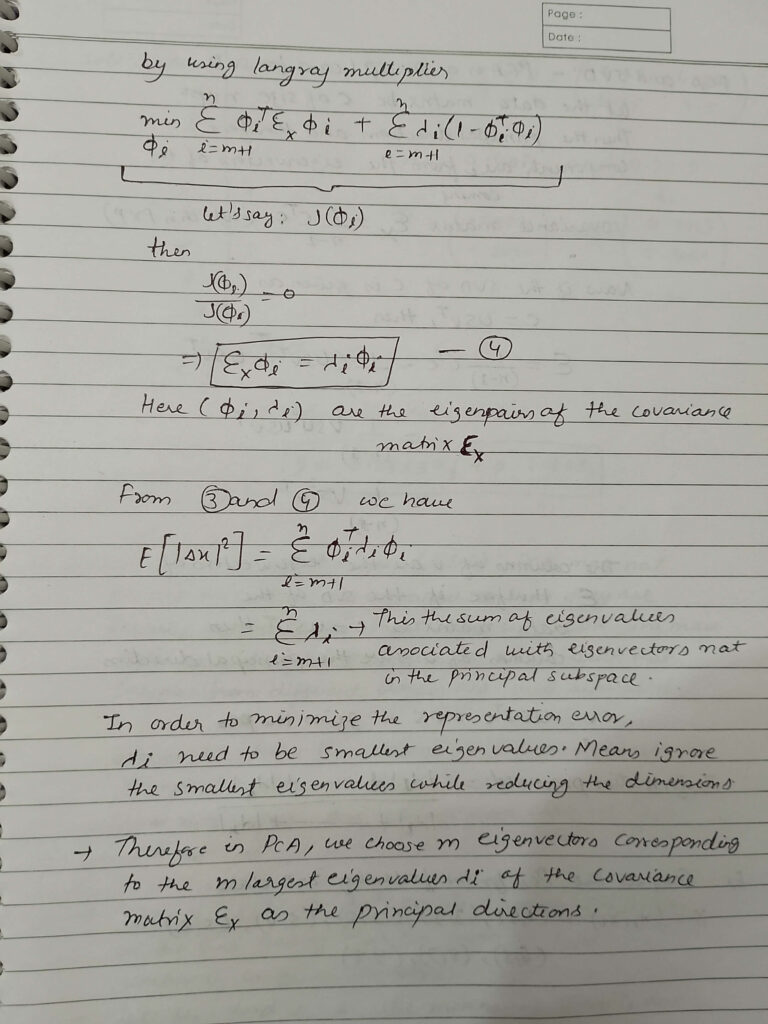 Page :
Date :
by using langraj multiplier
min Σ ϕᵢᵀ Σₓ ϕᵢ + Σ λᵢ (1 - ϕᵢᵀ ϕᵢ)
ϕᵢ i=m+1 n i=m+1 n
let's say: J(ϕᵢ)
then
J(ϕᵢ)/J(ϕᵢ) = 0
⇒ Σₓ ϕᵢ = λᵢ ϕᵢ — ④
Here (ϕᵢ, λᵢ) are the eigenpairs of the covariance
matrix Σₓ
From ③ and ④ we have
E[|Δx|²] = Σ ϕᵢᵀ λᵢ ϕᵢ
n i=m+1
= Σ λᵢ → This the sum of eigenvalues
n i=m+1 associated with eigenvectors not
in the principal subspace.
In order to minimize the representation error,
λᵢ need to be smallest eigenvalues. Means ignore
the smallest eigenvalues while reducing the dimensions
→ Therefore in PCA, we choose m eigenvectors corresponding
to the m largest eigenvalues λᵢ of the covariance
matrix Σₓ as the principal directions.